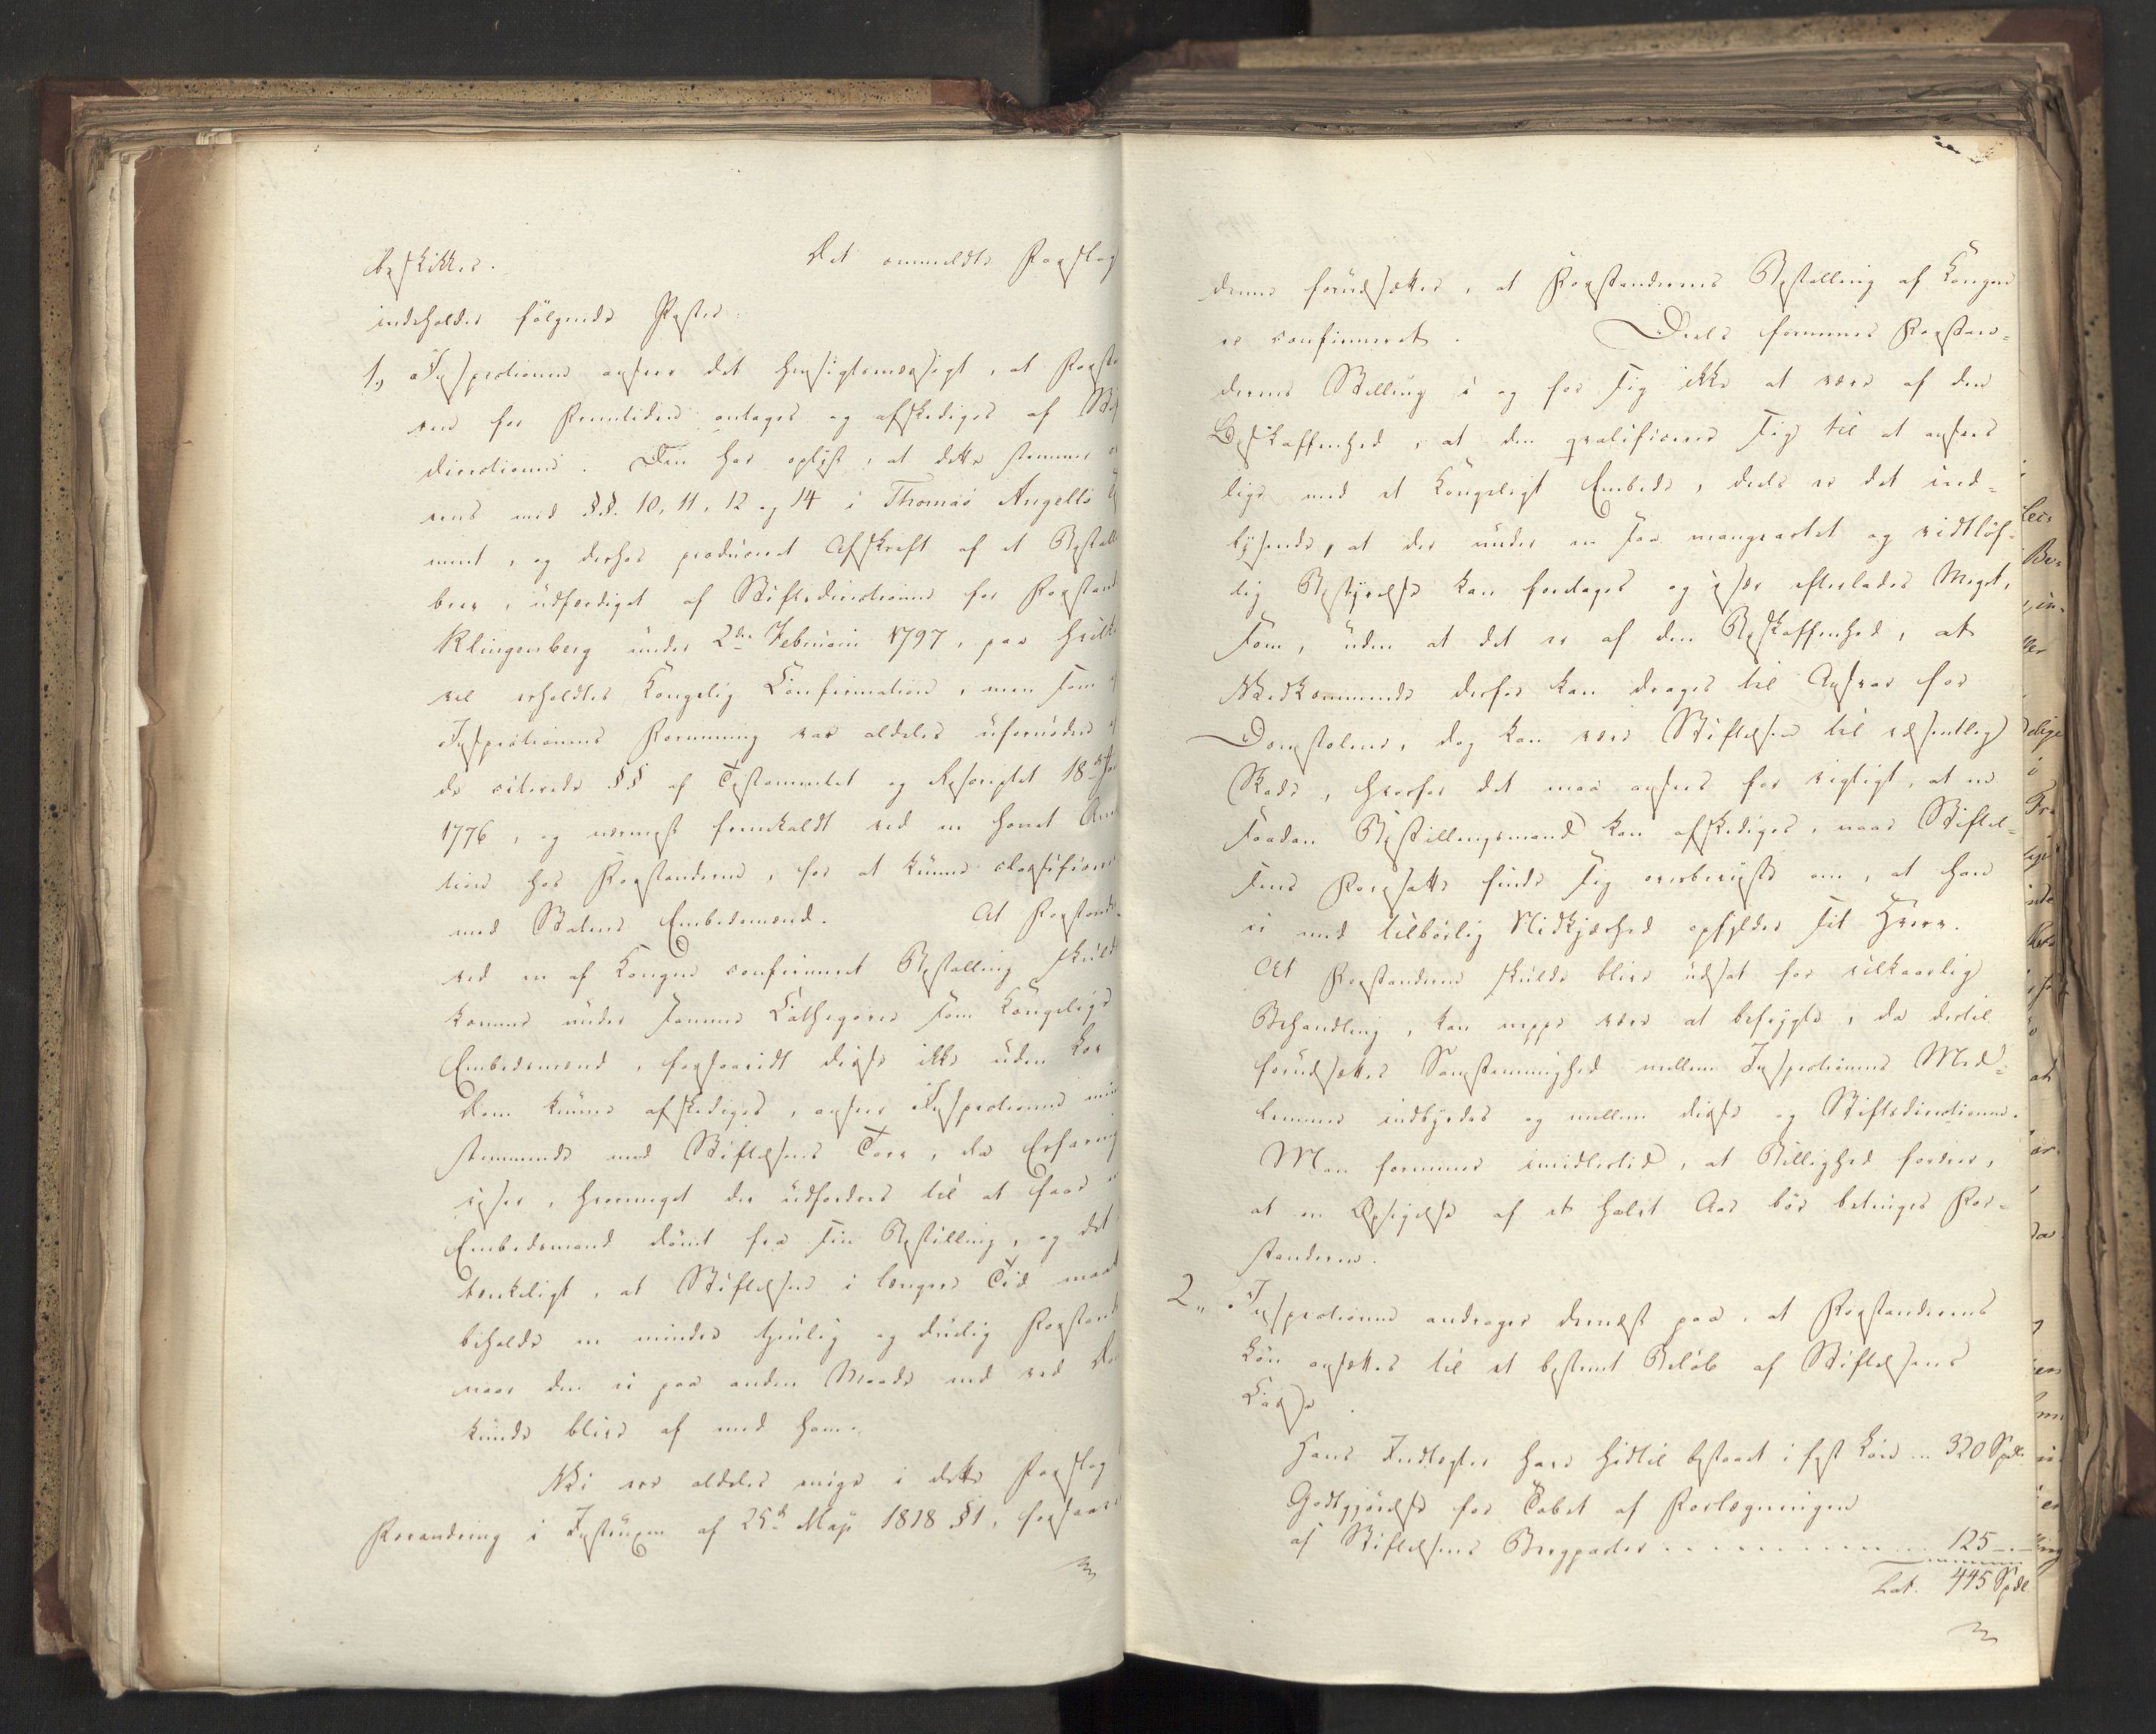 beskikkes. Det ommeldte Forslag
indeholder følgende Poster:
1, Inspectionen anseer det hensigtsmæssigt, at Forsta
ren for Fremtiden antages og afskediges af Stif
directionen. Den har oplyst, at dette stemmer
rens med §§. 10, 11, 12 og 14 i Thomas Angells
ment, og derhos produceret Afskrift af et Bestall
brev, udfærdiget af Stiftsdirectionen for Forstand
Klingenberg under 2den Februarii 1797, paa hvilk
vel erholdtes Kongelig Confirmation, men som
Inspectionens Formening var aldeles ufornøden
de citerede §§ af Testamentet og Rescriptet 18de
1776, og nærmest fremkaldt ved en havet Am
tion hos Forstanderen, for at kunne classificere
med Statens Embedsmænd. At Forstande
ved en af Kongen confirmeret Bestalling skuld
komme under samme Cathegorie som Kongelige
Embedsmænd, forsaavidt disse ikke uden
Dom kunne afskediges, anseer Inspectionen min
stemmende med Stiftelsens Tarv, da Erfaring
viser, hvormeget der udfordres til at faae
Embedsmand dømt fra sin Bestilling, og det
tænkeligt, at Stiftelsen i længere Tid maat
beholde en mindre tjenlig og duelig Forstand
naar den ei paa anden Maade end ved Do
kunde blive af med ham.
Vi ere aldeles enige i dette Forslag
Forandring i Instruxen af 25de Maji 1818 §1, forsaavi
denne forudsætter, at Forstanderens Bestalling af Kongen
er confirmeret. Deels formenes Forstan-
derens Stilling i og for sig ikke at være af den
Beskaffenhed, at den qvalificerer sig til at ansees
lige med et Kongeligt Embede, deels er det ind-
lysende, at der under en saa mangeartet og vidtløf-
tig Bestyrelse kan foretages og især efterlades Meget,
som, uden at det er af den Beskaffenhed, at
Vedkommende derfor kan drages til Ansvar for
Domstolene, dog kan være Stiftelsen til væsentlig
Skade, hvorfor det maa ansees for rigtigt, at en
saadan Bestillingsmand kan afskediges, naar Stiftel-
sens Foresatte finde sig overbeviiste om, at han
ei med tilbørlig Nidkjærhed opfylder sit Hverv.
At Forstanderen skulde blive udsat for vilkaarlig
Behandling, kan neppe være at befrygte, da dertil
forudsættes Samstemmighed mellem Inspectionens Med-
lemmer indbyrdes og mellem disse og Stiftsdirectionen.
Man formener imidlertid, at Billighed fordrer,
at en Opsigelse af et halvt Aar bør betinges For-
standeren.
2, Inspectionen andrager dernæst paa, at Forstanderens
Løn ansættes til et bestemt Beløb af Stiftelsens
Casse.
Hans Indtægter have hidtil bestaaet i fast Løn ... 320 Spd.
Godtgjørelse for Tabet af Forlægningen
af Stiftelsens Bergparter ........... 125 - -
Lat. 445 Spdl